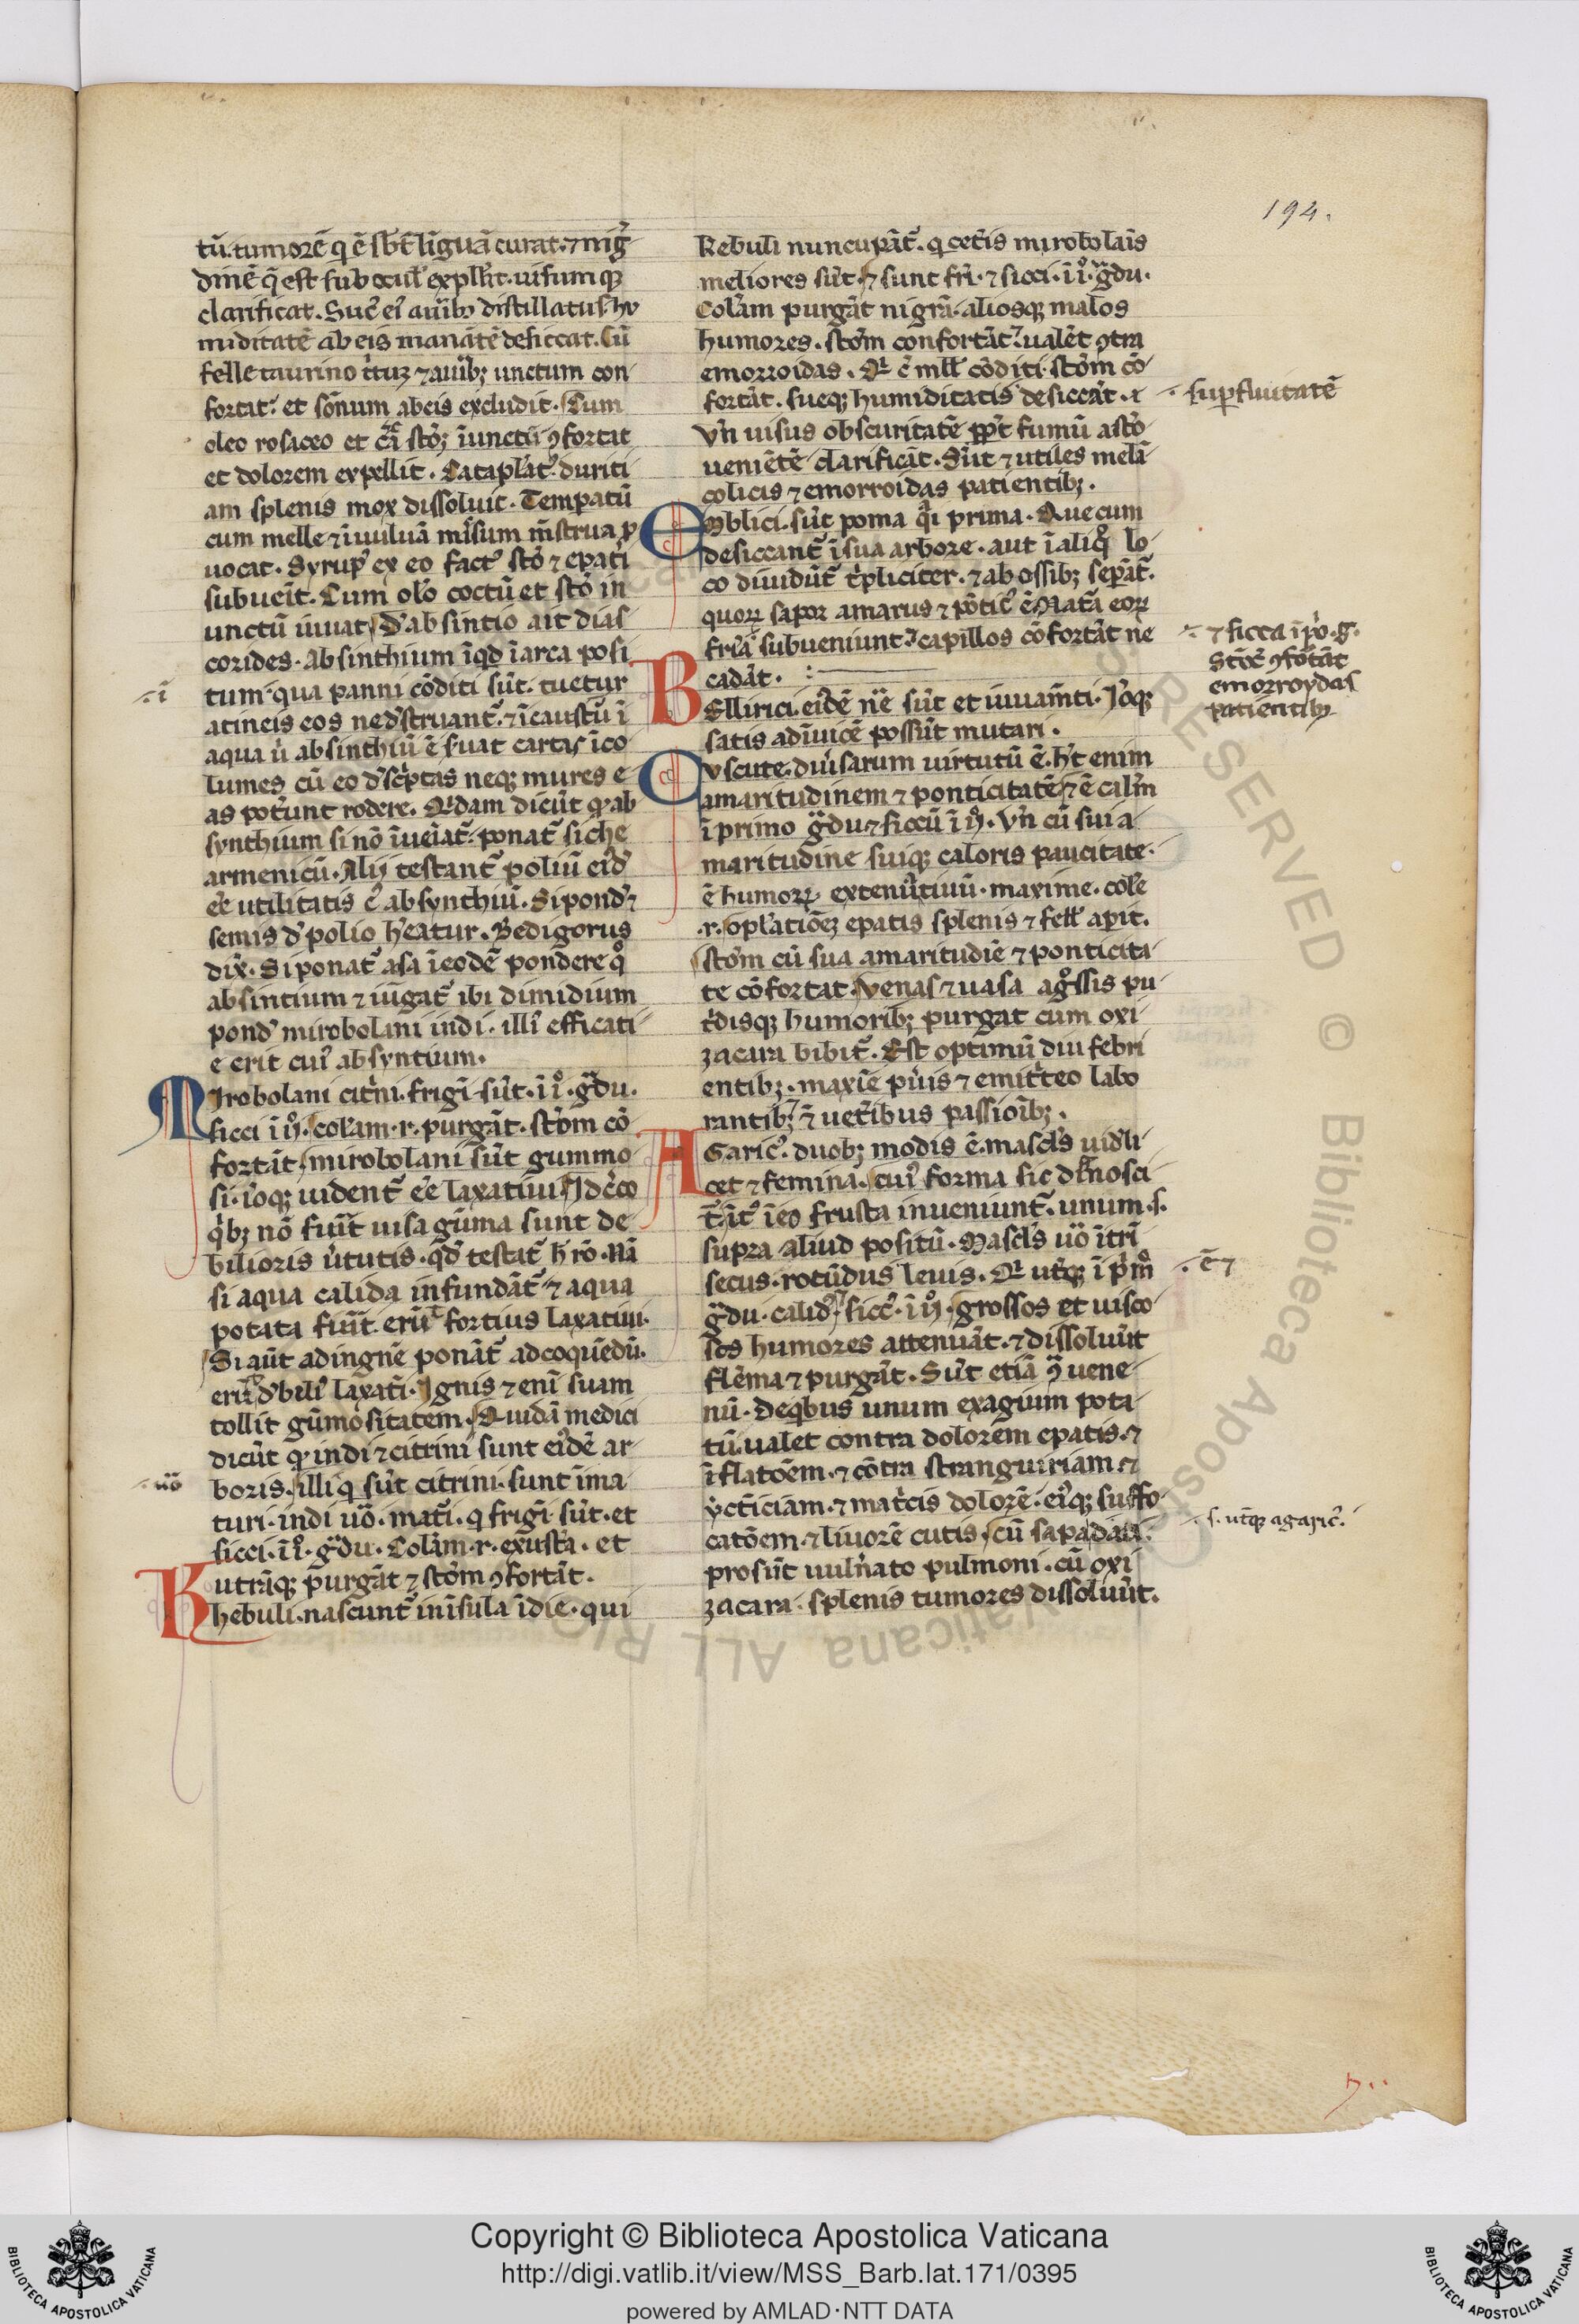 194.
tū. tumorē q̄ ē sb̄t līguā curat. ⁊ nig̅
dinē q̄ est sub ocul' expll'it. uisumq̨
clarificat. Suc̄ eī auib; distillatus hu
miditatē ab eis manātē desiccat. Cū
felle taurino t̄tuʒ ⁊ auib; unctum con
fortat. et sōnum ab eis excludit. Cum
oleo rosaceo et stō; īunctū ꝯfortat
et dolorem expellit. Cataplāt' duriti
am splenis mox dissoluit. Temperatū
cum melle ⁊ ī uuluā mīsum m̄strua ꝓ
uocat. Syrup' ex eo fact' stō ⁊ epati
subueit. Cum olō coctū et stō in
unctū iuuat. D' absintio ait dias
corides. Absinthium īqd ī arca posi
tum. qua panni cōditi sūt. tuetur
a tineis eos ne d'struant̄. ⁊ īcaustū ī
aqua ū absinthiū ē suat cartas īco
lumes cū eo d'sc̄ptas neq; mures e
as pot̄unt rodere. Q̄dam dicūt q̄ ab
synthium si nō īueiat̄. ponat̄ siche
armenicū. Alij testant̄ poliū ei'd'
eē utilitatis c̄ absynthiū. Si pond' ⁊
semis d' polio h'eatur. Bedigorus
dix̄. Si ponat̄ asa ī eodē pondere q̊
absintium ⁊ iūgat̄ ibi dimidium
pond' mirobolani indi. illi' efficati
e erit cui' absyntium.
Mirobolani cit̄ni. frigi sūt. ī ı̊ı. g̊du.
sicci ī ıȷ̊. colam. r. purgāt. stōm cō
fortāt. mirobolani sūt gummo
si. iōq; uident̄ eē laxatiui. Idc̄co
q̄b; nō fuit uisa gūma sunt de
bilioris ūtutis. qd' testat̄ h̄ rō. Nā
si aqua calida infundāt̄ ⁊ aqua
potata fuīt. erūt fortius laxatiui.
Si aūt ad ingnē ponāt̄ ad coquēdū.
erūt d'bili' laxati. Ignis ⁊ enī suam
tollit gūmositatem. Quidā medici
dicūt q̄ indi ⁊ citrini sunt ei'dē ar
boris. illi q̄ sūt citrini. sunt īma
turi. indi uō. mati. q̄ frigi sūt. et
sicci. ī ı̊ı. g̊du. Colam. r. exusta. et
utrāq; purgāt ⁊ stōm ꝯfortāt.
Khebuli. nascunt̄ in īsula īdie. qui
·ī
·uō
Kebuli nuncupāt̄. q̄ cet̄is mirobolais
meliores sūt. ⁊ sunt fri. ⁊ sicci. ī ı̊ı. g̊du.
Colam purgāt nigrā. aliosq; malos
humores. stōm confortāt. ualēt ꝯtra
emorroidas. Q̄ c̄ mll' cōditi. stōm cō
fortāt. sueq; humiditatis desiccāt. ⁊
Vn̄ uisus obscuritatē ꝓpt̄ fumū a stō
ueniētē clarificāt. Sūt ⁊ utiles melā
colicis ⁊ emorroidas patientib;.
Emblici. sūt poma q̄i prima. Que cum
desiccant̄ ī sua arbore. aut ī aliq̊ lo
co diuidūt̄ t̄pliciter. ⁊ ab ossib; sepāt̄.
quoꝝ sapor amarus ⁊ pōtic' ē. Natā eoꝝ
friā subueniunt. capillos cōfortāt ne
cadāt.
Bellirici. ei'dē nē sūt et iuuam̄ti. Iōq;
satis adiuicē possūt mutari.
Cuscute. diūsarum uirtutū ē. h't enim
amaritudinem ⁊ ponticitatē. ⁊ ē calm̄
ī primo g̊du ⁊ siccū ī ıȷ̊. Vn̄ cū sui a
maritudine suiq; caloris paucitate.
ē humoꝝ extenuatiuū. maxime. cole
.r. oplatiōeʒ epatis splenis ⁊ fell' apit.
stōm cū sua amaritudīe ⁊ ponticita
te cōfortat. Venas ⁊ uasa a g̊ssis pu
t̄disq; humorib; purgat cum oxi
zacara bibit̄. Est optimū diu febri
entib;. maxie pūis ⁊ emit̄teo labo
rantib; ī uet̄ibus passioib;.
Agaric'. duob; modis ē. mascls uid'li
cet ⁊ femina. cui' forma sic d'nosci
t̄. ī eo frusta inueniunt̄. unum. s.
supra aliud positū. Mascls uō ītrī
secus. rotūdus leuis. Q̄ ut̄q; ī p̄mo
g̊du. calid'. sicc'. ī ıȷ̊. grossos et uisco
sos humores attenuāt. ⁊ dissoluūt
flēma ⁊ purgāt. Sūt etiā ꝯ uene
nū. De q̄bus unum exagium pota
tū. ualet contra dolorem epatis. ⁊
īflatōem. ⁊ cōtra stranguiriam. ⁊
yct̄iciam. ⁊ mat̄cis dolorē. ei'q; suffo
catōem. ⁊ liuorē cutis. cū sapa
prosūt uuln̄ato pulmoni. cū oxi
zacara. splenis tumores dissoluūt.
·suꝑfluitatē
·⁊ sicca ī pō. g.
stōc̄ ꝯfortāt
emorroydas
patientib;
·ē ⁊
·s. ut̄q; agaric'.
Copyright © Biblioteca Apostolica Vaticana
http://digi.vatlib.it/view/MSS_Barb.lat.171/0395
powered by AMLAD·NTT DATA
BIBLIOTECA APOSTOLICA VATICANA
BIBLIOTECA APOSTOLICA VATICANA